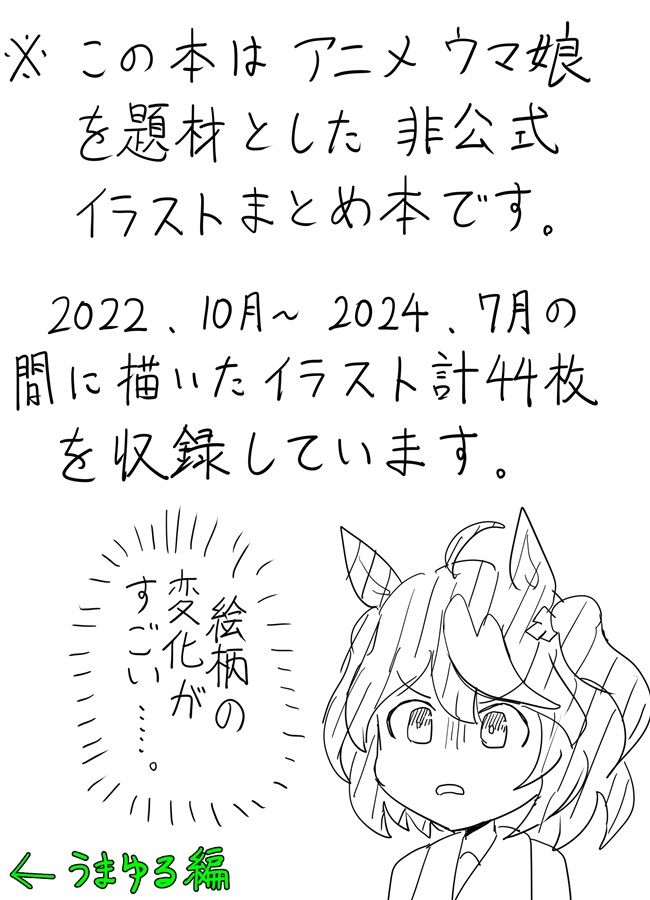 ※ この本は アニメ ウマ娘
を題材とした 非公式
イラストまとめ本です。
2022、10月~ 2024、7月の
間に描いたイラスト計44枚
を収録しています。
絵柄の
変化が
すごい……。
← うまゆる編